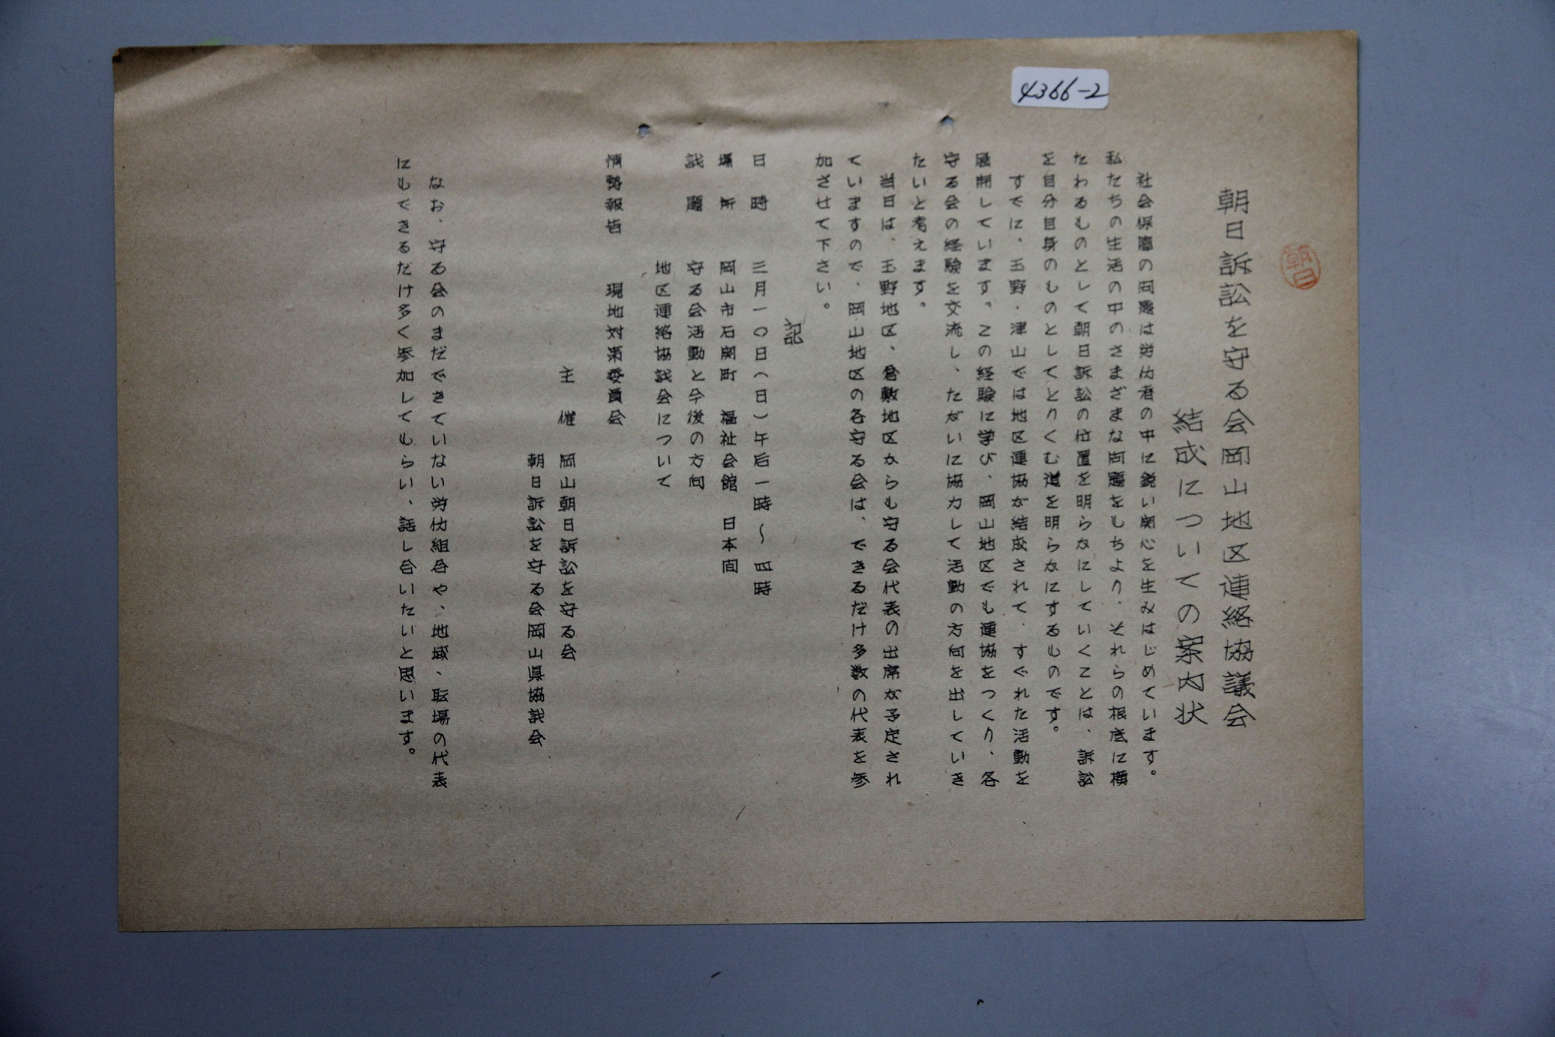 4366-2
朝日
朝日訴訟を守る会岡山地区連絡協議会
結成についての案内状
社会保障の問題は労仂者の中に鋭い関心を生みはじめています。
私たちの生活の中のさまざまな問題をもちより、それらの根底に横
たわるものとして朝日訴訟の位置を明らかにしていくことは、訴訟
を自分自身のものとしてとりくむ道を明らかにするものです。
すでに、玉野・津山では地区連協が結成されて、すぐれた活動を
展開しています。この経験に学び、岡山地区でも連協をつくり、各
守る会の経験を交流し、たがいに協力して活動の方向を出していき
たいと考えます。
当日は、玉野地区、倉敷地区からも守る会代表の出席が予定され
ていますので、岡山地区の各守る会は、できるだけ多数の代表を参
加させて下さい。
記
日時 三月一〇日(日)午后一時~四時
場所 岡山市石関町 福祉会館 日本間
議題 守る会活動と今後の方向
地区連絡協議会について
情勢報告 現地対策委員会
主催 岡山朝日訴訟を守る会
朝日訴訟を守る会岡山県協議会
なお、守る会のまだできていない労仂組合や、地域、職場の代表
にもできるだけ多く参加してもらい、話し合いたいと思います。